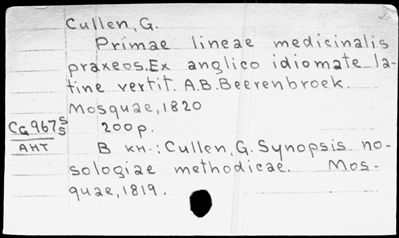 Cullen, G.
Primae lineae medicinalis
praxeos. Ex anglico idiomate la-
tine vertit. A.B. Beerenbroek.
Mosquae, 1820
200 p.
В кн.: Cullen, G. Synopsis no-
sologiae methodicae. Mos-
quae, 1819.
CG967 S/S
АНТ